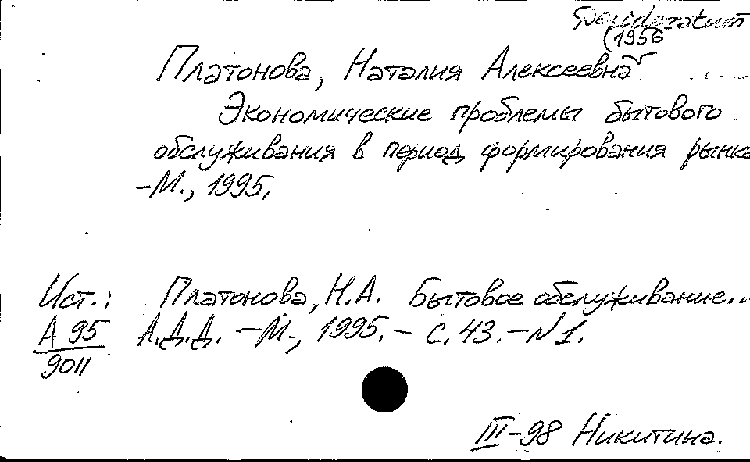 Desideratum
(1956
Платонова, Наталия Алексеевна
Экономические проблемы бытового
обслуживания в период формирования рынка
-М., 1995,
Ист.: Платонова, Н.А. Бытовое обслуживание...
А 95 А.Д.Д. -М., 1995. - С. 43. - №1.
9011
III-98 Никитина.